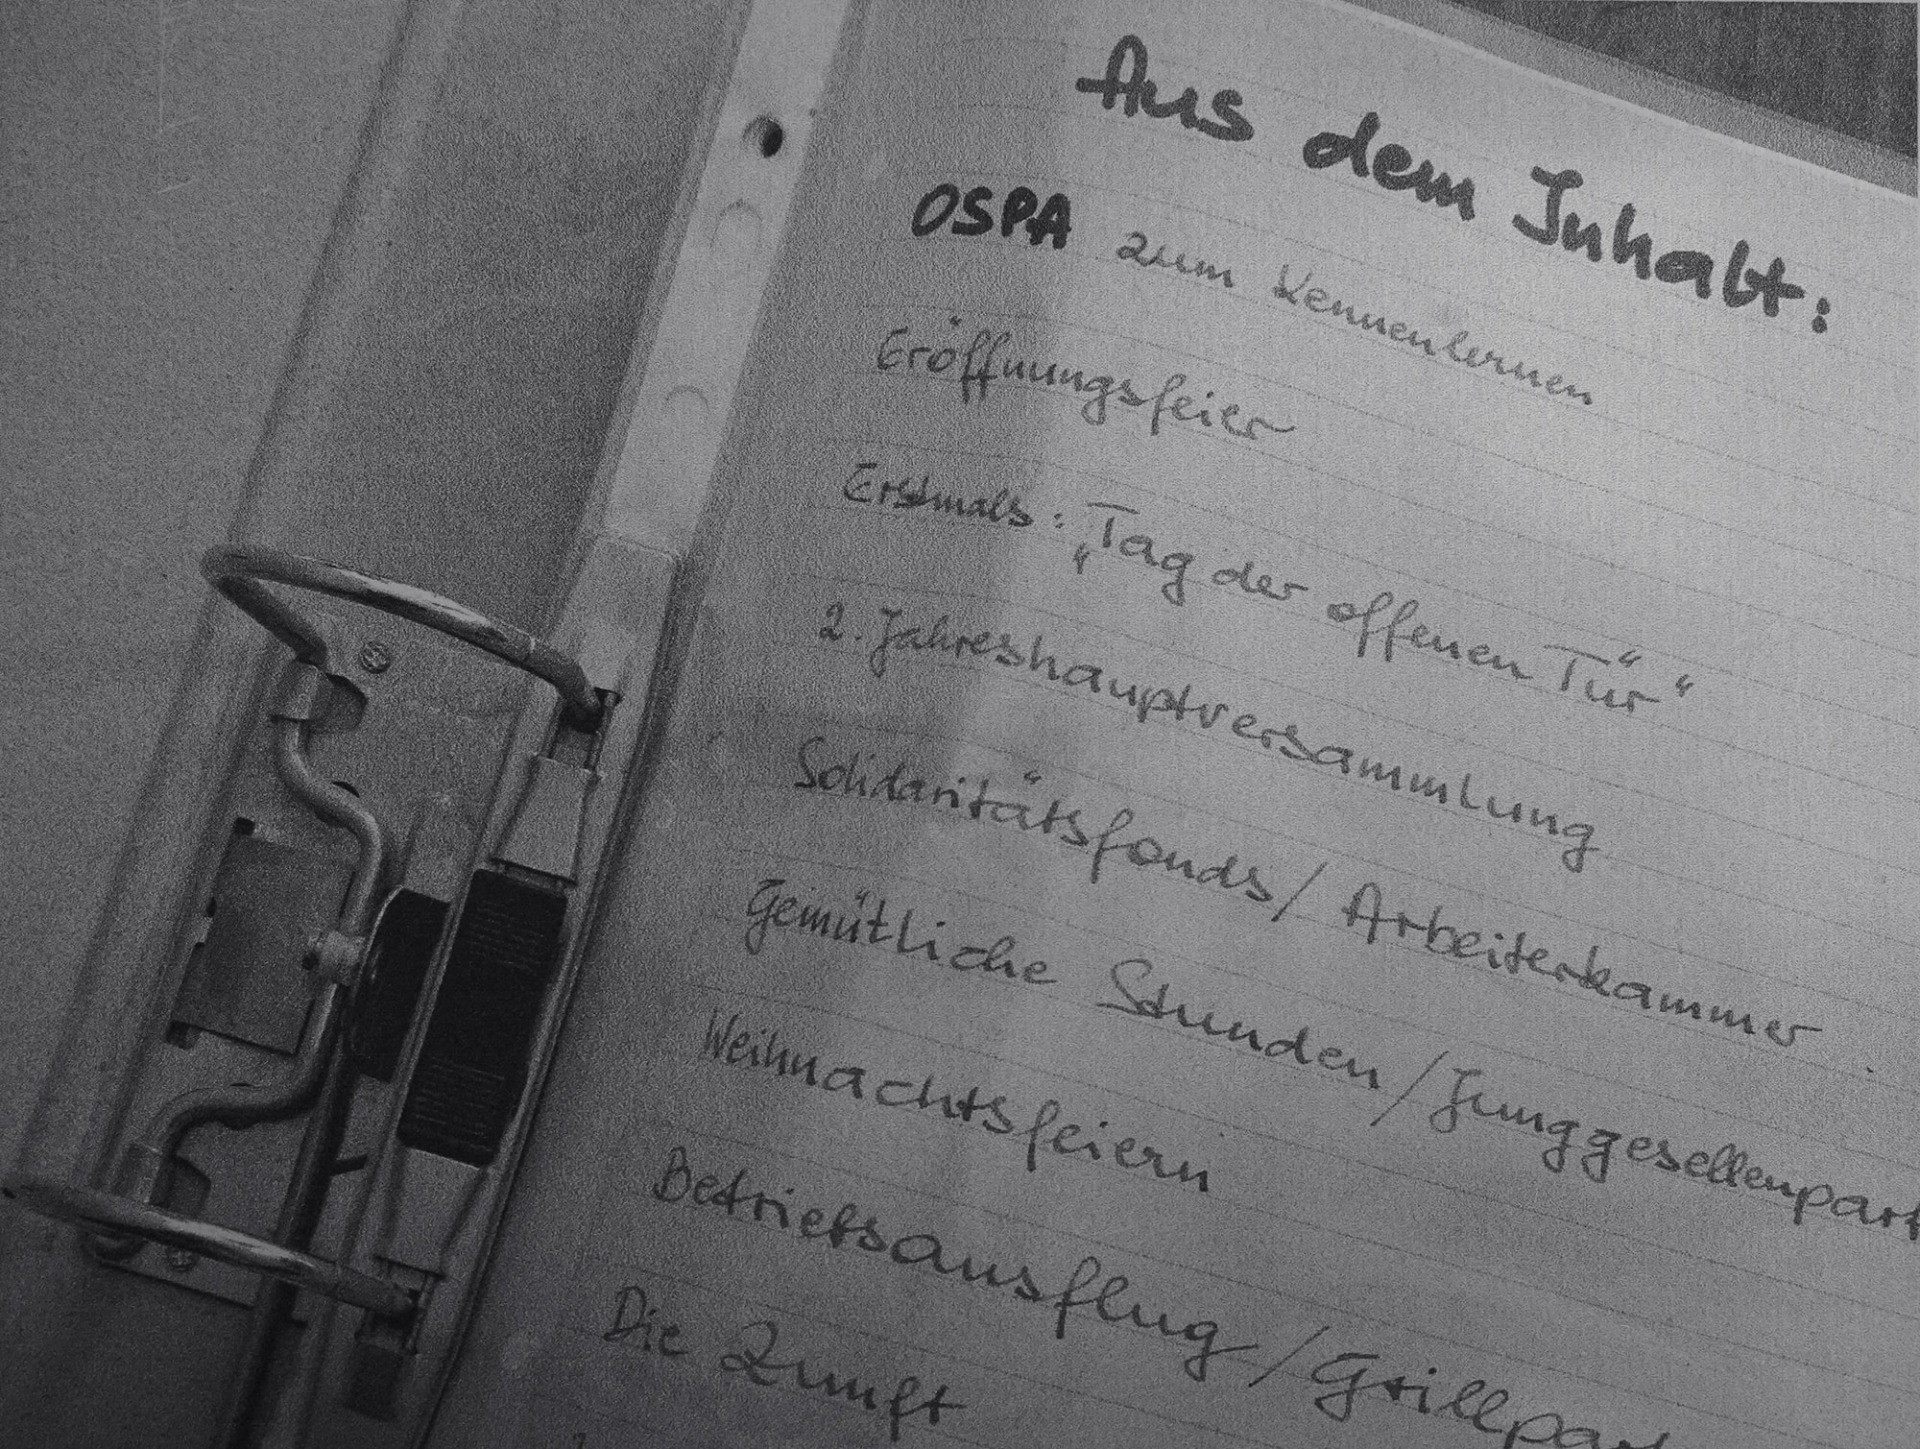 Aus dem Inhalt:
OSPA zum Kennenlernen
Eröffnungsfeier
Erstmals: „Tag der offenen Tür“
2. Jahreshauptversammlung
Solidaritätsfonds / Arbeiterkammer
Gemütliche Stunden / Junggesellenpart
Weihnachtsfeiern
Betriebsausflug / Grillpar
Die Zunft